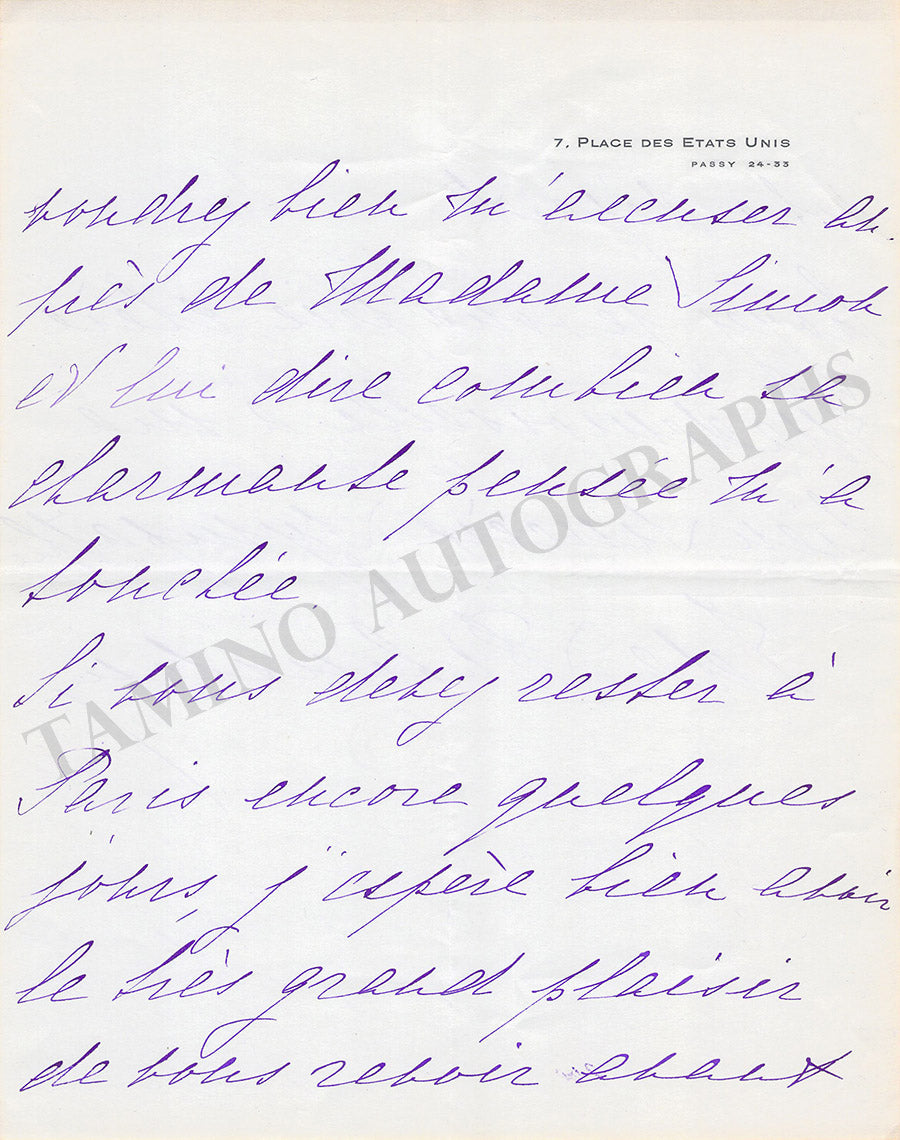 7, PLACE DES ETATS UNIS
PASSY 24-33
voudrez bien m'excuser au-
près de Madame Simon
et lui dire combien sa
charmante pensée m'a
touchée.
Si vous devez rester à
Paris encore quelques
jours, j'espère bien avoir
le très grand plaisir
de vous revoir avant
TAMINO AUTOGRAPHS